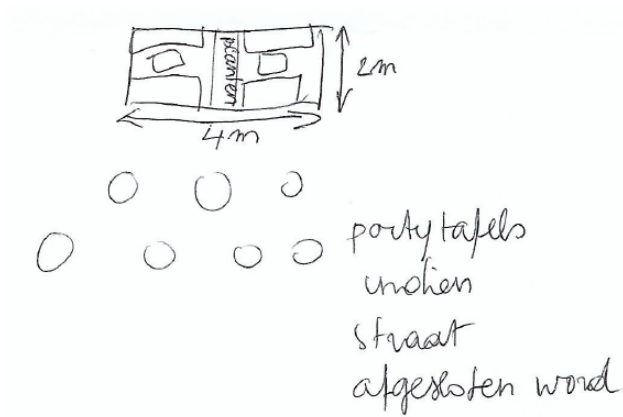 planten
2m
4m
partytafels
indien
straat
afgesloten word